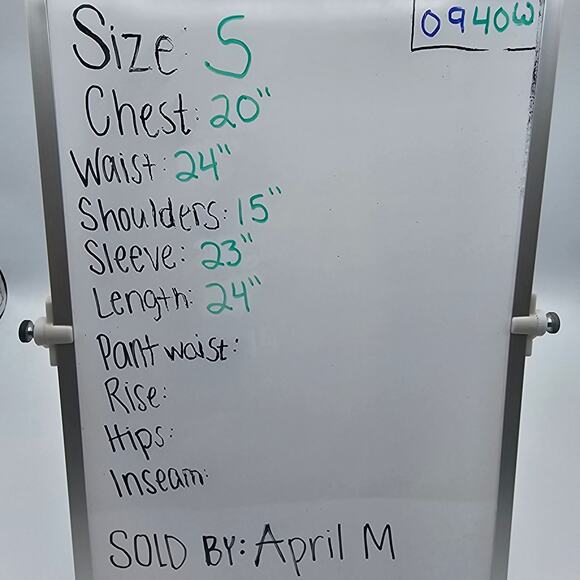 Size: S
0940W
Chest: 20"
Waist: 24"
Shoulders: 15"
Sleeve: 23"
Length: 24"
Pant waist:
Rise:
Hips:
Inseam:
SOLD BY: April M